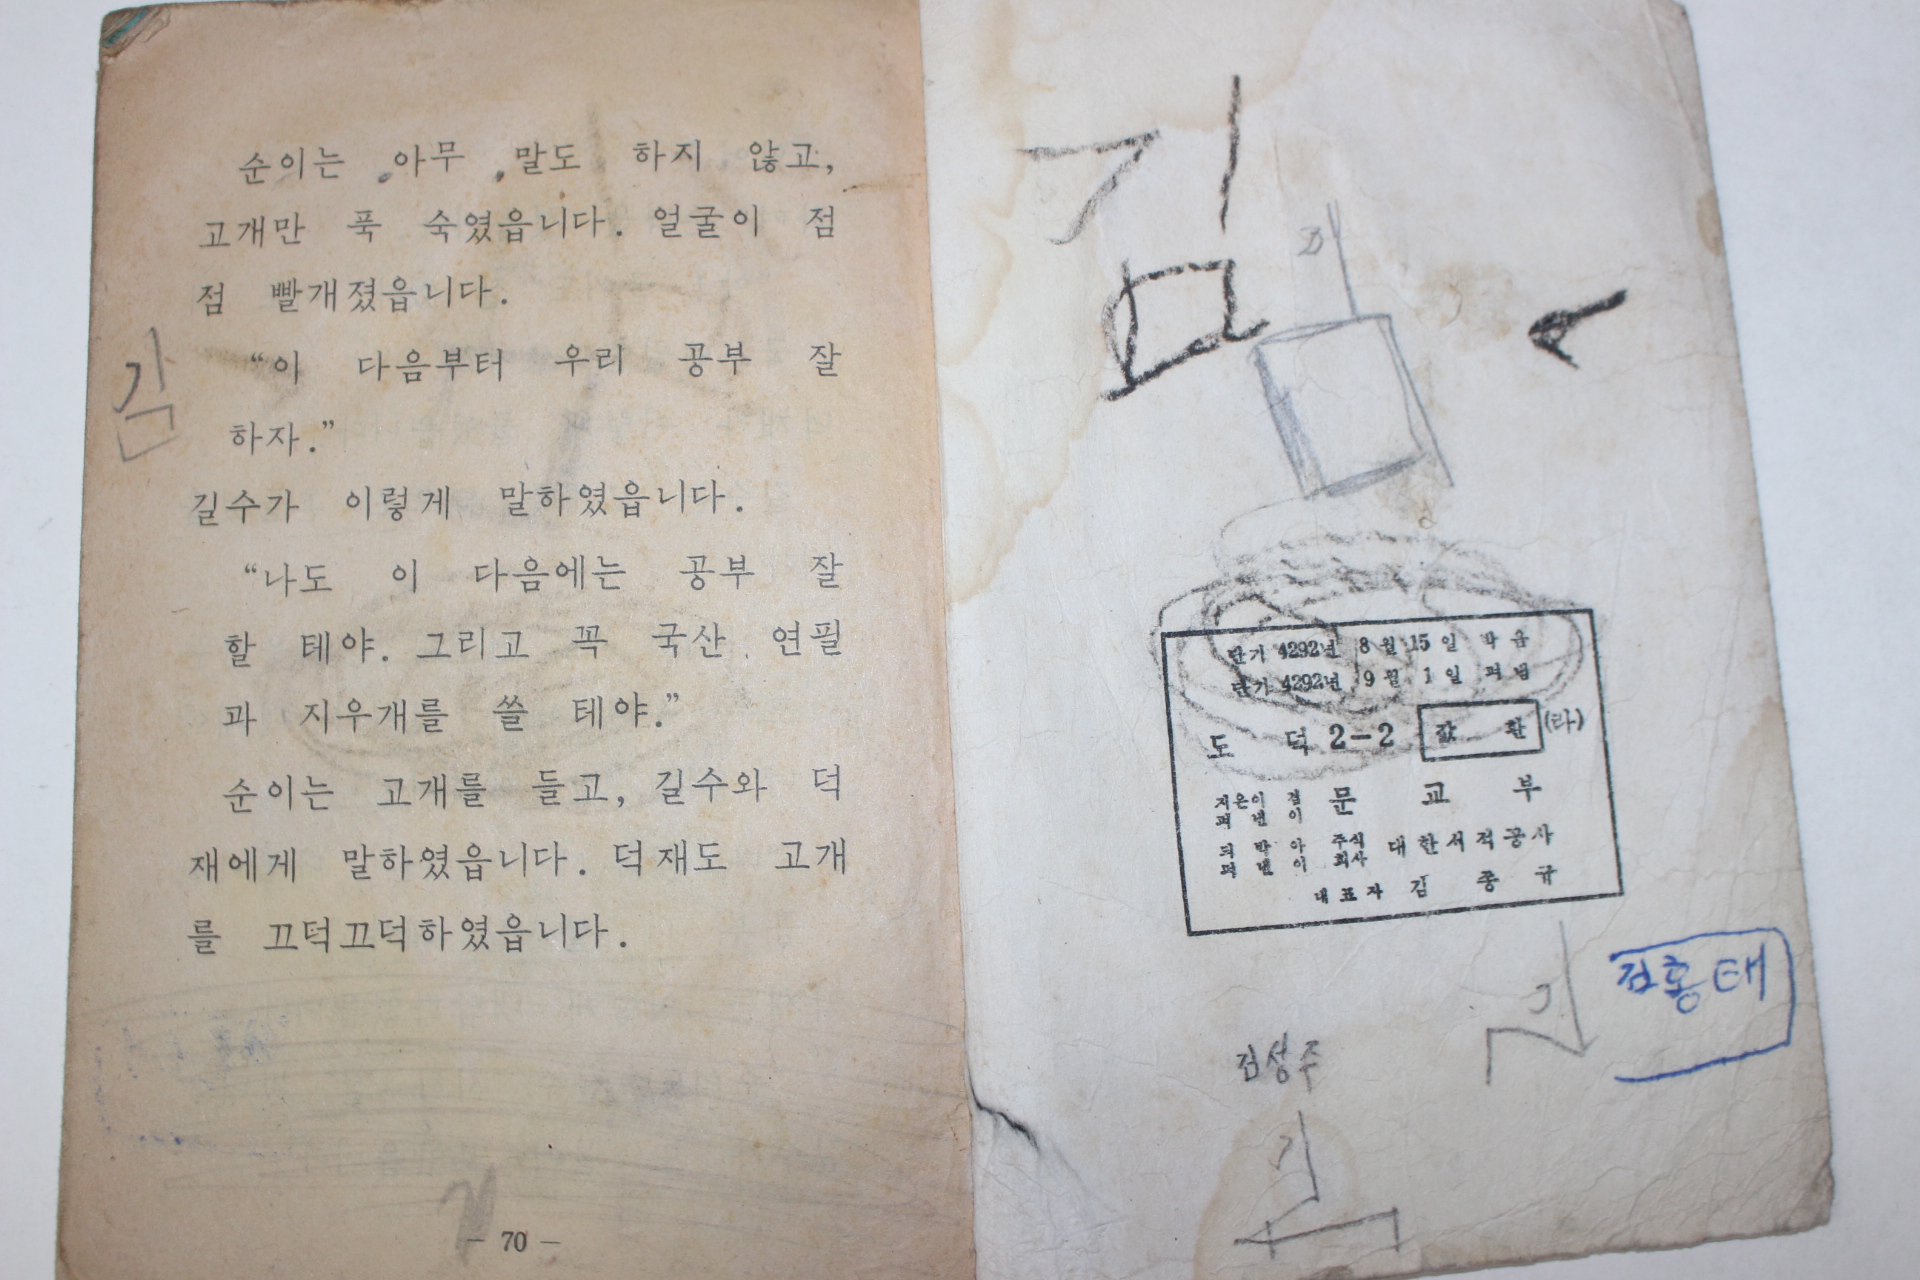 순이는 아무 말도 하지 않고,
고개만 푹 숙였읍니다. 얼굴이 점
점 빨개졌읍니다.
“이 다음부터 우리 공부 잘
하자.”
길수가 이렇게 말하였읍니다.
“나도 이 다음에는 공부 잘
할 테야. 그리고 꼭 국산 연필
과 지우개를 쓸 테야.”
순이는 고개를 들고, 길수와 덕
재에게 말하였읍니다. 덕재도 고개
를 끄덕끄덕하였읍니다.
김
— 70 —
김
단기 4292년 8월 15일 박음
단기 4292년 9월 1일 펴냄
도덕 2-2 값 환 (라)
지은이 겸
펴낸이 문교부
되박아
펴낸이 주식회사 대한서적공사
대표자 김종규
홍태
김성주